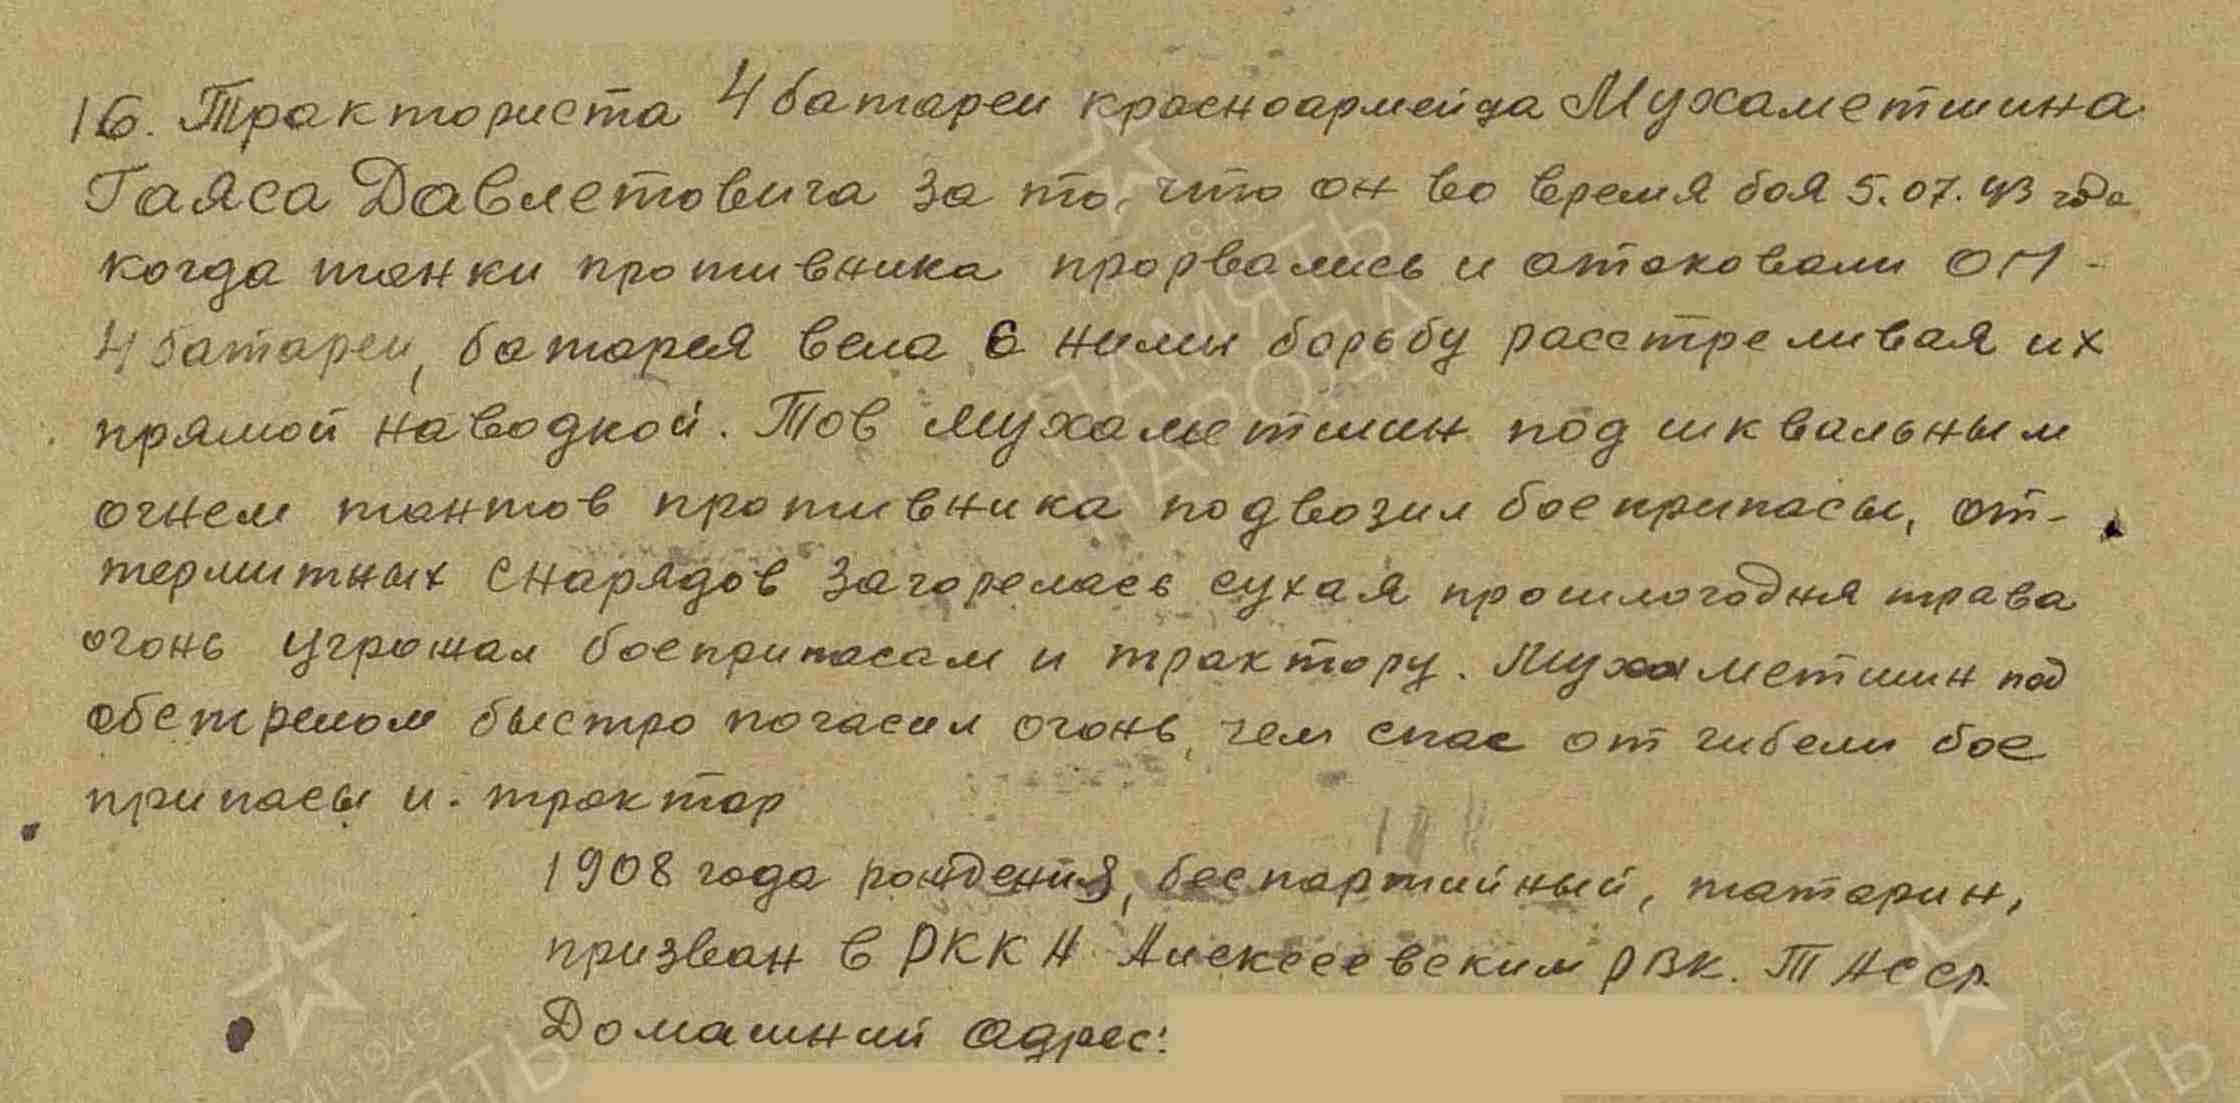 16. Тракториста 4 батареи красноармейца Мухаметшина
Гаяса Давлетовича за то, что он во время боя 5.07.43 года
когда танки противника прорвались и атаковали ОП-
4 батареи, батарея вела с ними борьбу расстреливая их
прямой наводкой. Тов Мухаметшин под шквальным
огнем танков противника подвозил боеприпасы, от-
термитных снарядов загорелась сухая прошлогодняя трава
огонь угрожал боеприпасам и трактору. Мухаметшин под
обстрелом быстро погасил огонь, чем спас от гибели бое
припасы и трактор
1908 года рождения, беспартийный, татарин,
призван в РККА Алексеевским РВК. ТАССР.
Домашний адрес:
ПАМЯТЬ
НАРОДА